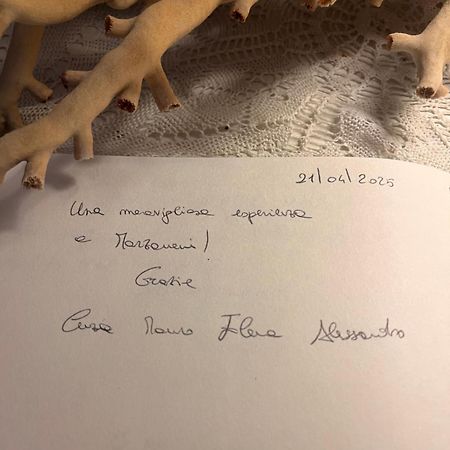 21/04/2025
Una meravigliosa esperienza
a Marzamemi!
Grazie
Mauro Elena Alessandro